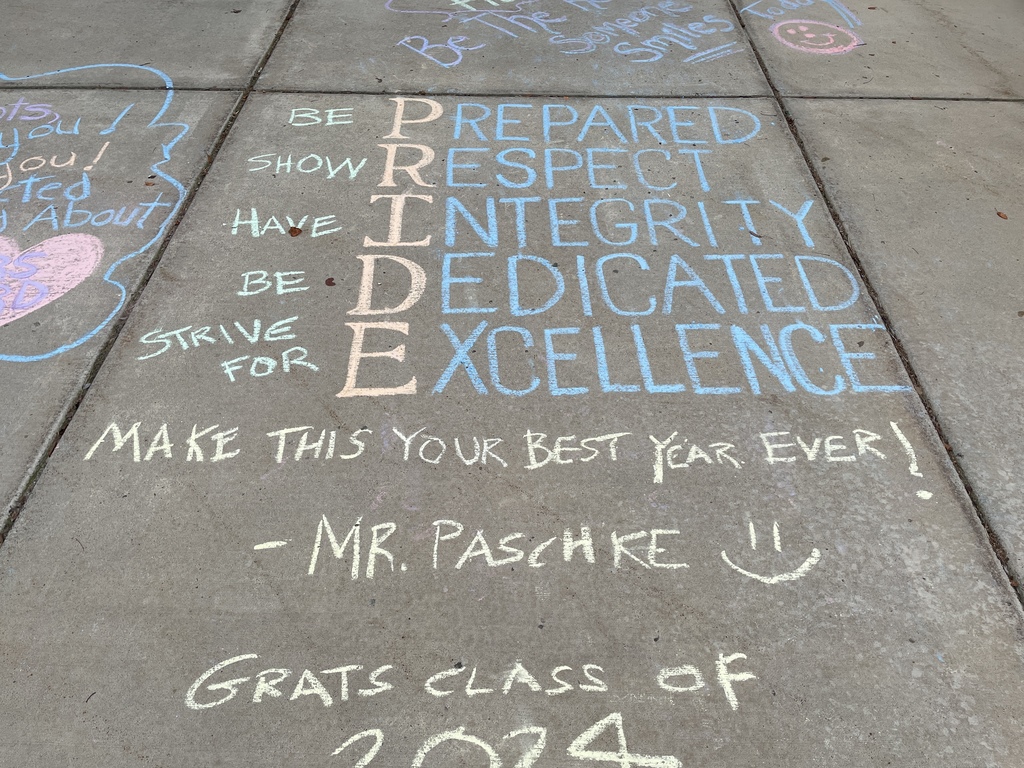 Be The
Someone
Smiles
Today
you!
you!
About
BE PREPARED
SHOW RESPECT
HAVE INTEGRITY
BE DEDICATED
STRIVE
FOR EXCELLENCE
MAKE THIS YOUR BEST YEAR EVER!
- MR. PASCHKE
GRATS CLASS OF
2024